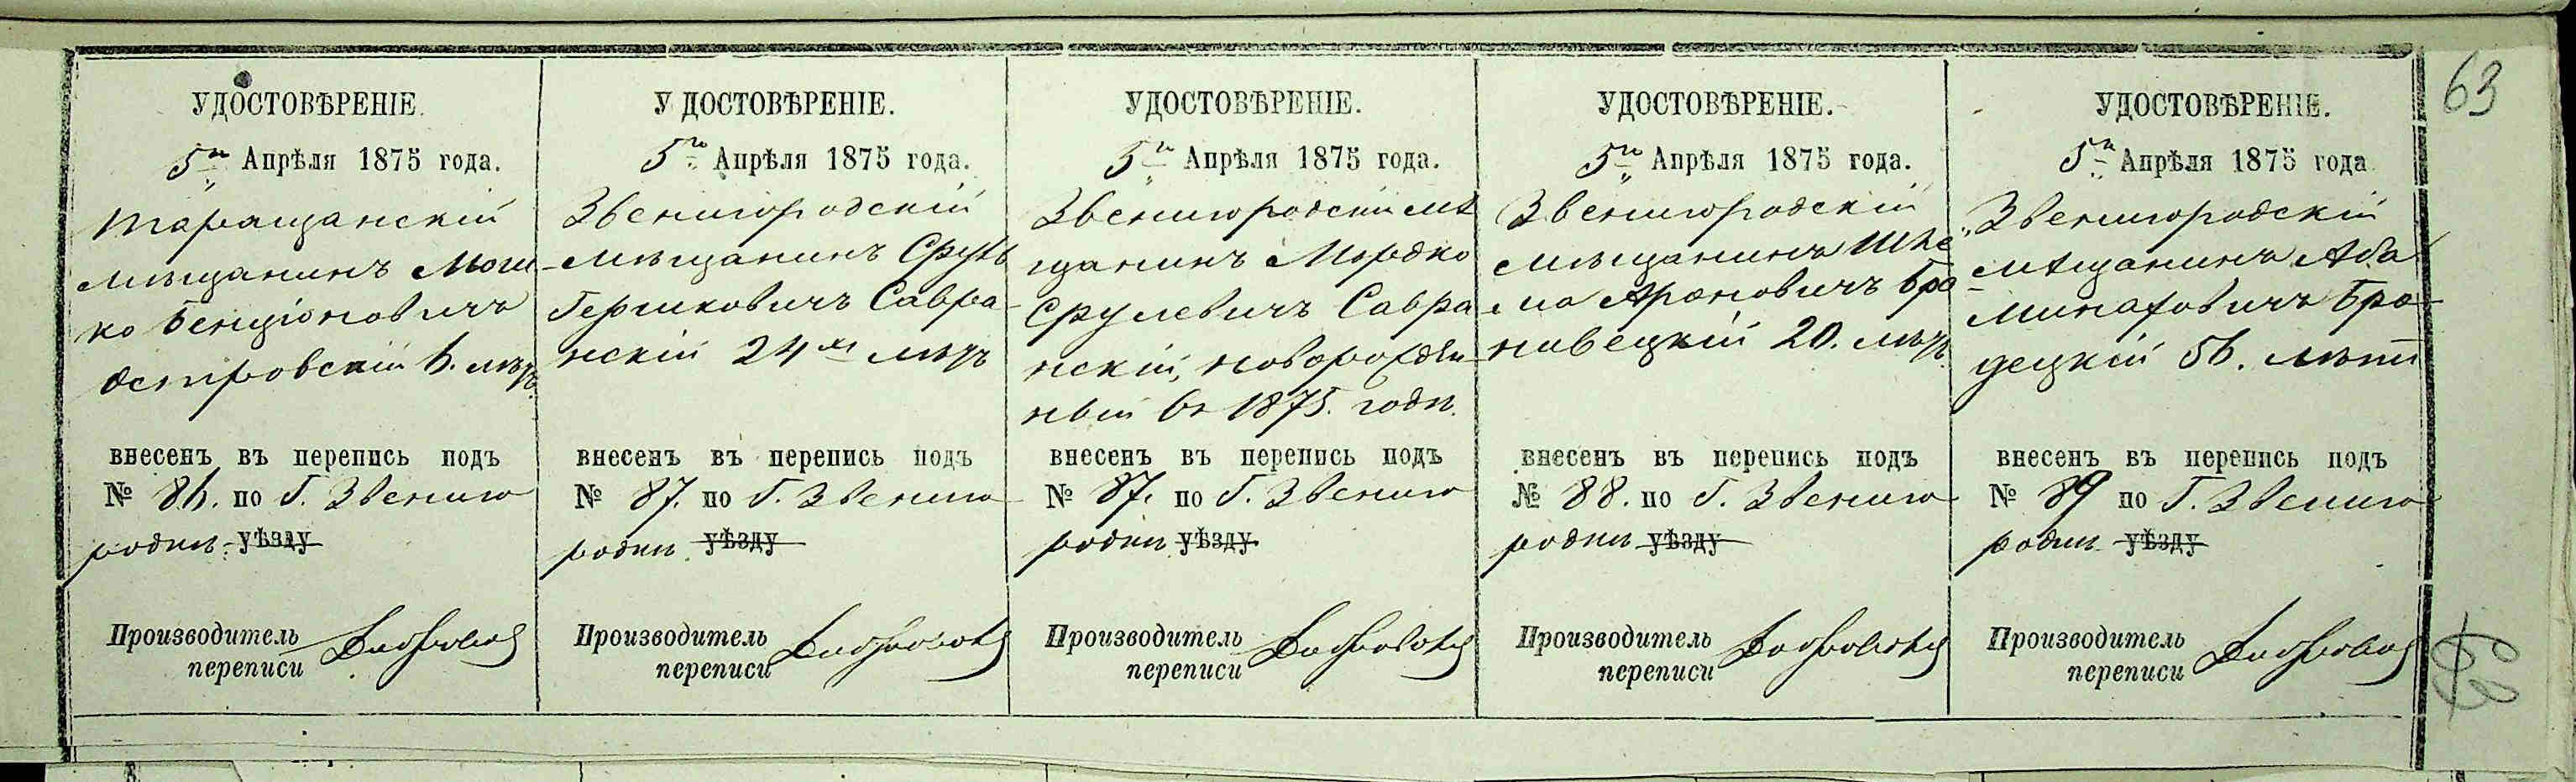 63
УДОСТОВѢРЕНІЕ.
5го Апрѣля 1875 года.
Таращанскій
мѣщанинъ Мош
ко Бенціоновичъ
Островскій 6. лѣтъ
внесенъ въ перепись подъ
№ 86. по Г. Звениго
родки уѣзду
Производитель
переписи
УДОСТОВѢРЕНІЕ.
5го Апрѣля 1875 года.
Звенигородскій
мѣщанинъ Сруль
Гершковичъ Савра-
нскій 24хъ лѣтъ
внесенъ въ перепись подъ
№ 87. по Г. Звениго
родки уѣзду
Производитель
переписи
УДОСТОВѢРЕНІЕ.
5го Апрѣля 1875 года.
Звенигородскій мѣ
щанинъ Мордко
Срулевичъ Савра
нскій, новорожден
ный въ 1875. годѣ.
внесенъ въ перепись подъ
№ 87. по Г. Звениго
родки уѣзду
Производитель
переписи
УДОСТОВѢРЕНІЕ.
5го Апрѣля 1875 года.
Звенигородскій
мѣщанинъ Шле
ма Ароновичъ
20. лѣтъ
внесенъ въ перепись подъ
№ 88. по Г. Звениго
родки уѣзду
Производитель
переписи
УДОСТОВѢРЕНІЕ.
5го Апрѣля 1875 года
Звенигородскій
мѣщанинъ Аба
Бро-
децкій 56. лѣтъ
внесенъ въ перепись подъ
№ 89 по Г. Звениго
родки уѣзду
Производитель
переписи